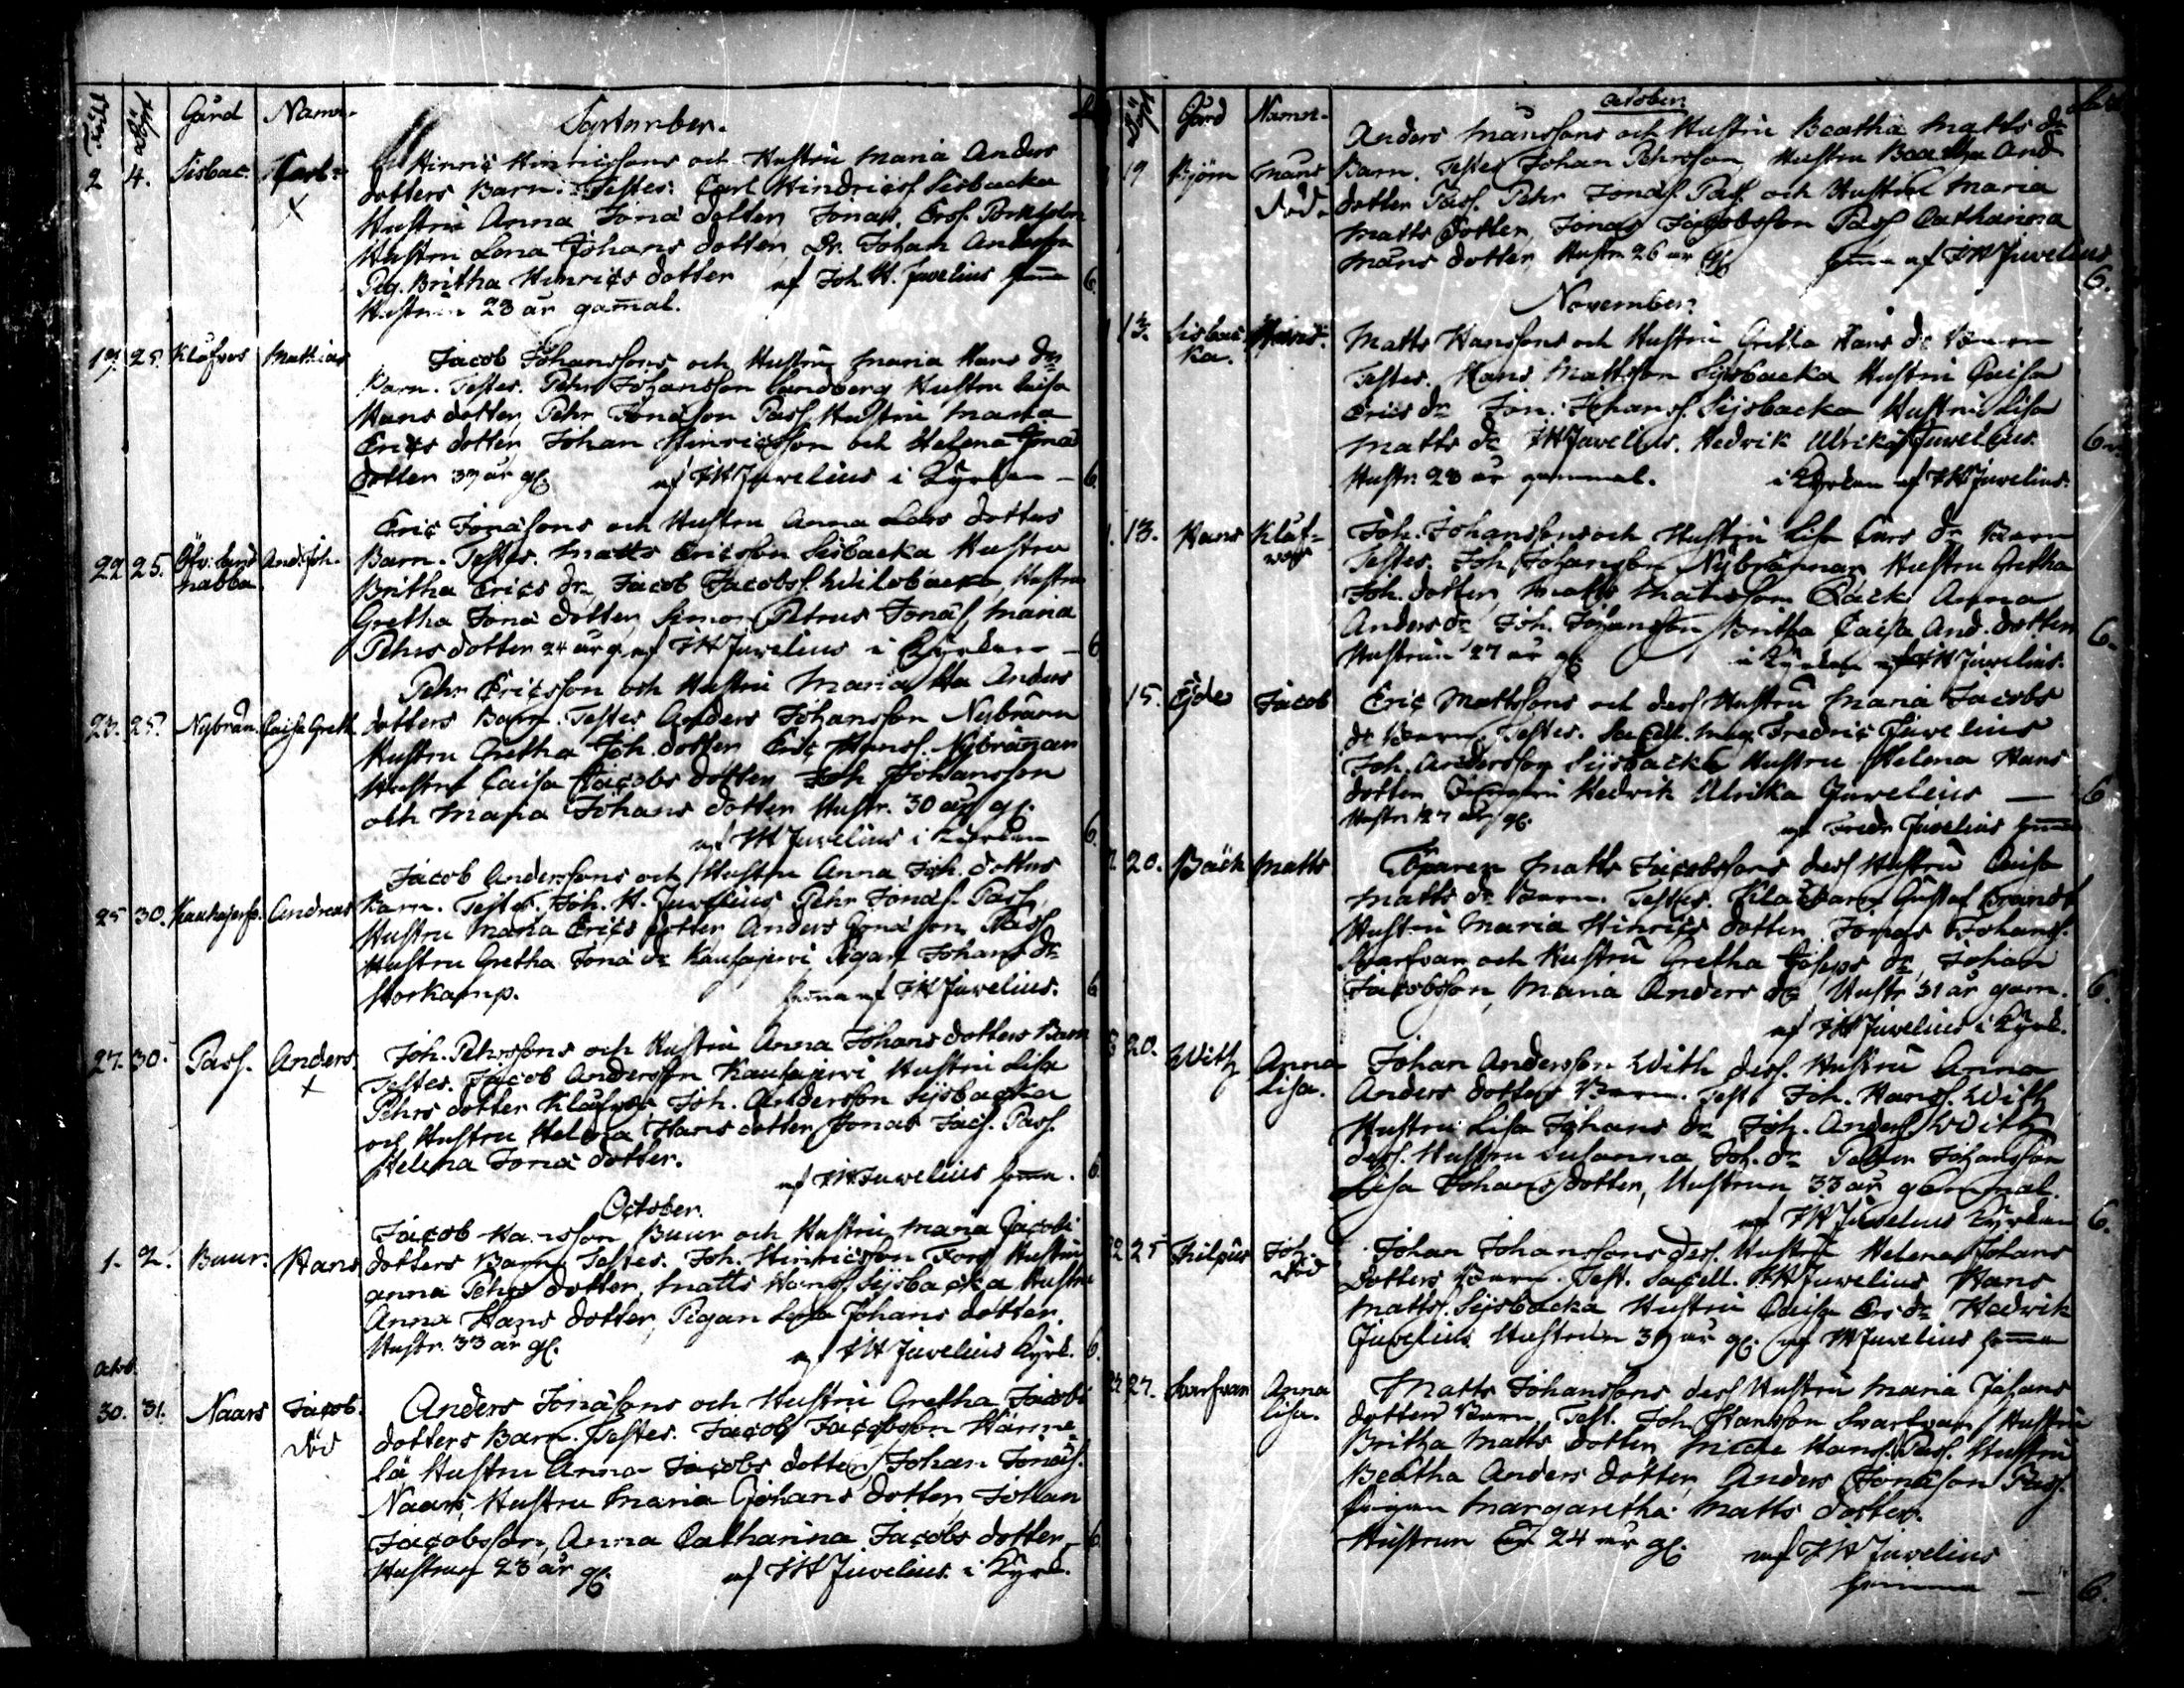 Gård Namn
September.
2 4. Sisbac. Carl
Hinric Hinricssons och Hustru Maria Anders
dotters Barn. Testes: Carl Hindricss. Sisbacka
Hustru Anna Jona dotter, Jonas
Hustru Lena Johans dotter, Dr. Johan Andersson
Pig. Britha Hinrics dotter af Joh. H. Juvelius hema 6.
Hustrun 23 år gamal.
19. 25. Klåfvos Mathias
Jacob Johanssons och Hustru Maria Hans dr
Barn. Testes. Pehr Johansson Sandberg Hustru Caisa
Hans dotter, Pehr Jonasson Pass, Hustru Maria
Erics dotter, Johan Hinricsson och Helena Jona
dotter 37 år gl. af JH Juvelius i Kyrkan 6.
Eric Jonasons och Hustru Anna Lars dotters
22 25. nabba And. Joh.
Barn. Testes. Matts Ericsson Sisbacka Hustru
Britha Erics dr, Jacob Jacobss. Hustru
Gretha Jona dotter, Petrus Jonass, Maria
Pehrs dotter 24 år g. af JH Juvelius i Kyrkan 6
Pehr Ericsson och Hustru Maria Anders
23. 25. Nybrän. Caisa Greth
dotters Barn. Testes Anders Johansson Nybränn
Hustru Gretha Joh. dotter Eric Hanss. Nybrännar
Hustru Caisa Jacobs dotter Joh Johansson
och Maria Johans dotter Hustr. 30 år gl.
af JH Juvelius i Kyrkan 6.
Jacob Anderssons och Hustru Anna Joh. dotters
25 30. Andreas
Barn. Testes. Joh. H. Juvelius Pehr Jonass. Pass,
Hustru Maria Erics dotter, Anders Jonasson Pass
Hustru Gretha Jona dr Kauhajervi Pigan Johans dr
Storkamp. hema af JH Juvelius. 6
27. 30. Pass. Anders.
Joh. Pehrssons och Hustru Anna Johans dotters Barn
Testes. Jacob Andersson Kauhajervi Hustru Lisa
Pehrs dotter Klåfvos Joh. Andersson Sijsbacka
och Hustru Helena Hans dotter, Jonas Jacs. Pass.
Helena Jona dotter.
af JH Juvelius hema. 6.
October.
Jacob Hansson Buur och Hustru Maria Jacobs
1. 2. Buur. Hans
dotters Barn. Testes. Joh. Hinricsson Fors Hustru
Anna Pehrs dotter, Matts Hanss. Sijsbacka Hustru
Anna Hans dotter, Pigan Johans dotter.
Hustr. 33 år gl. af JH Juvelius Kyrk. 6.
octob.
30. 31. Naars Jacob.
död
Anders Jonasons och Hustru Gretha Jacobs
dotters Barn. Testes. Jacob Jacobsson
Hustru Anna Jacobs dotter, Johan Jonass.
Naars, Hustru Maria Johans dotter, Johan
Jacobsson, Anna Catharina Jacobs dotter, 6.
Hustrun 23 år gl. af JH Juvelius i Kyrk.
Döpt Gård Namn.
october
Anders Månssons och Hustru Beatha Matts dr
19 Björn Måns
död.
Barn. Testes Johan Pehrsson, Hustru Beatha And
dotter Pass. Pehr Jonass. Pass. och Hustru Maria
Matts dotter, Jonas Jacobsson Pass Catharina
Måns dotter, Hustr. 26 år gl. hema af JH Juvelius
6.
November.
13. Sisbac
ka. Hans.
Matts Hanssons och Hustru Gretha Hans dr Barn
Testes. Hans Mattsson Sijsbacka Hustru Caisa
Erics dr Jon. Johanss. Sijsbacka Hustru Lisa
Matts dr JH Juvelius. Hedvik Ulrika Juvelius. 6.
Hustr. 28 år gammal. i Kyrkan af JH Juvelius.
13. Hans Klåf-
vos
Joh. Johanssons och Hustru Lisa Lars dr Barn
Testes. Joh. Johansson Nybrännar Hustru Gretha
Joh. dotter, Matts Mattsson Bäck Anna
Anders dr Joh. Johansson, Britha Caisa And. dotter 6.
Hustrun 27 år gl. i Kyrkan af JH Juvelius.
15. Öjde Jacob
Eric Mattssons och dess Hustru Maria Jacobs
dr Barn. Testes. Sacell. Mag. Fredric Juvelius
Joh. Andersson Sijsbacka Hustru Helena Hans
dotter, Hedvik Ulrika Juvelius 6
Hustr. 27 år gl. af Fredr. Juvelius hema
20. Bäck Matts
Matts Jacobssons dess Hustru Caisa
Matts dr Barn. Testes. Gustaf Brandt
Hustru Maria Hinrics dotter, Jonas Johanss.
Svarfvar och Hustru Gretha Joseps dr, Johan
Jacobsson, Maria Anders dr Hustr. 31 år gam. 6.
af JH Juvelius i Kyrk.
20. With Anna
Lisa.
Johan Andersson With dess. Hustru Anna
Anders dotters Barn. Test. Joh. Hanss. With
Hustru Lisa Johans dr Joh. Anderss. With
dess. Hustru Susanna Joh. dr Petter Johansson
Lisa Johans dotter, Hustrun 33 år gammal.
af JH Juvelius Kyrkan 6.
22 25 Philpus Joh.
död
Johan Johanssons dess. Hustru Helena Johans
dotters Barn. Test. Sacell. JH Juvelius Hans
Mattss. Sijsbacka Hustru Caisa Ers dr Hedvik
Juvelius Hustrun 39 år gl. af JH Juvelius hema
27. Svarfvar Anna
Lisa.
Matts Johanssons dess Hustru Maria Johans
dotters Barn. Test. Joh. Hansson Svarfvar, Hustru
Britha Matts dotter, Hanss. Pass. Hustru
Beatha Anders dotter, Anders Jonasson Pass.
Pigan Margaretha Matts dotter.
Hustrun 24 år gl. af JH Juvelius
hemma 6.